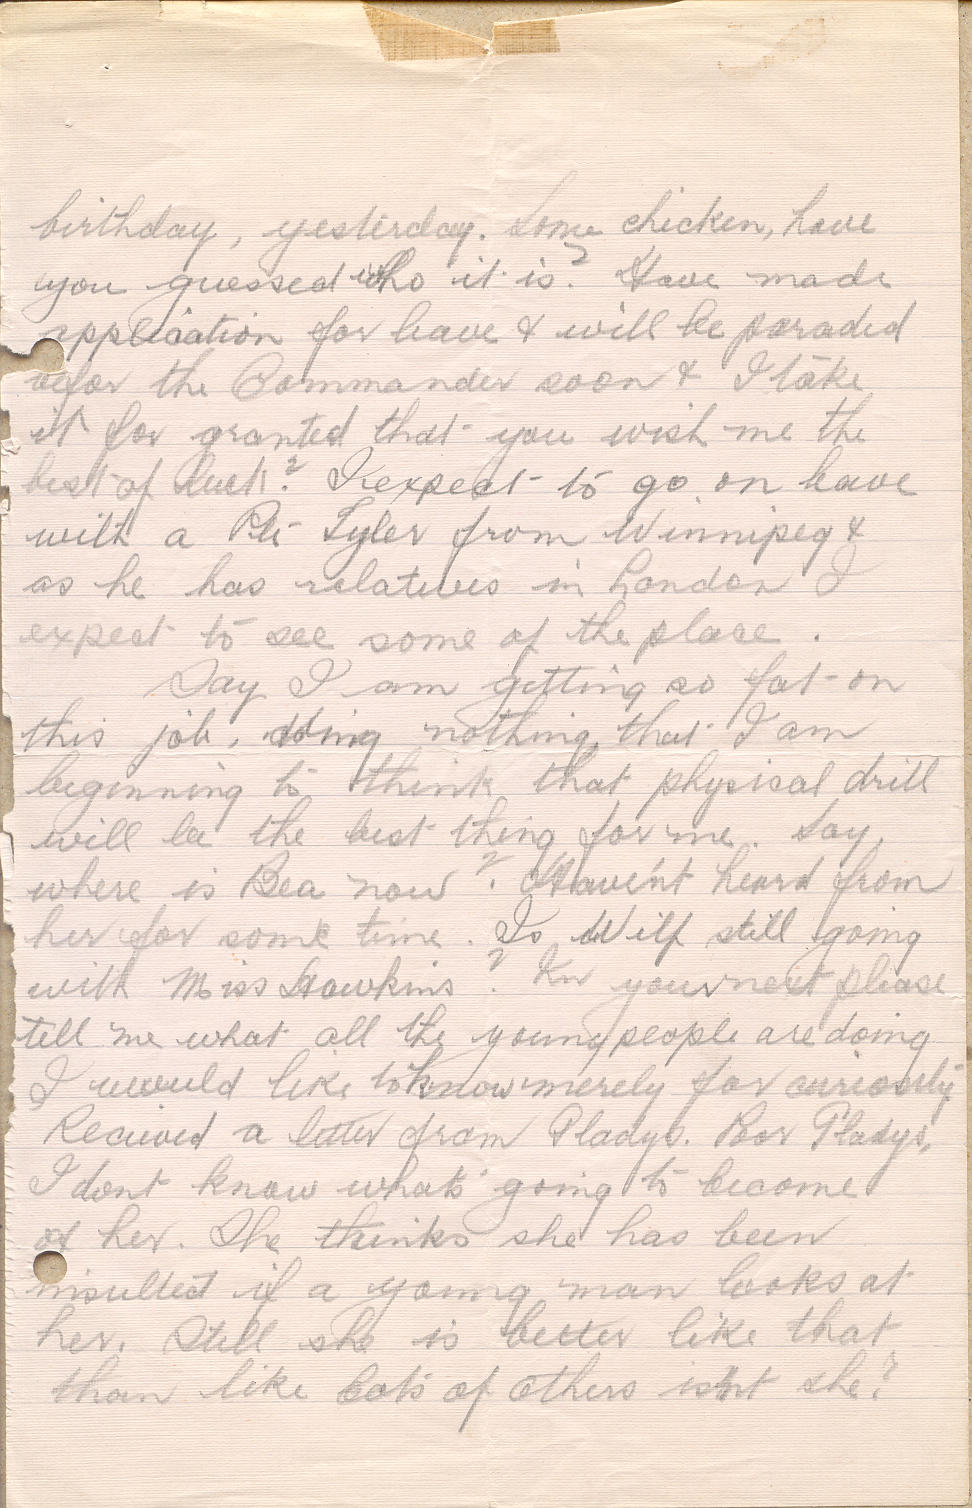 birthday, yesterday. Some chicken, have
you guessed who it is? Have made
application for leave & will be paraded
befor the Commander soon & I take
it for granted that you wish me the
best of luck? I expect to go on leave
with a Pte Tyler from Winnipeg &
as he has relatives in London I
expect to see some of the place.
Say I am getting so fat on
this job, doing nothing, that I am
beginning to think that physical drill
will be the best thing for me. Say,
where is Bea now? Havent heard from
her for some time. Is Wilf still going
with Miss Hawkins? In your next please
tell me what all the young people are doing
I would like to know merely for curiosity
Recieved a letter from Gladys. Poor Gladys,
I dont know whats going to become
of her. She thinks she has been
insulted if a young man looks at
her. Still she is better like that
than like lots of others isnt she?